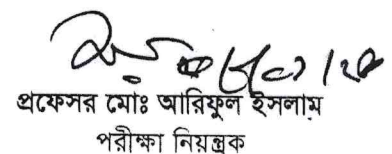 প্রফেসর মোঃ আরিফুল ইসলাম
পরীক্ষা নিয়ন্ত্রক